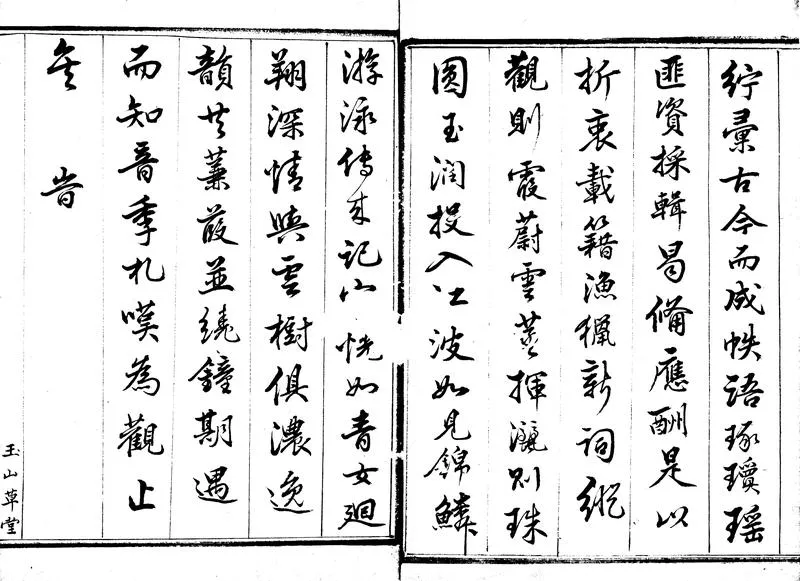 紵彙古今而成帙語琢瓊瑶
匪資採輯曷備應酬是以
折衷載籍漁獵新詞縱
觀則霞蔚雲蒸揮灑則珠
圓玉潤投入江波如見錦鱗
游泳傳来記山恍如青女廻
翔深情與雲樹俱濃逸
韻共蒹葭並繞鐘期遇
而知音季札嘆為觀止
矣 旹
玉山草堂